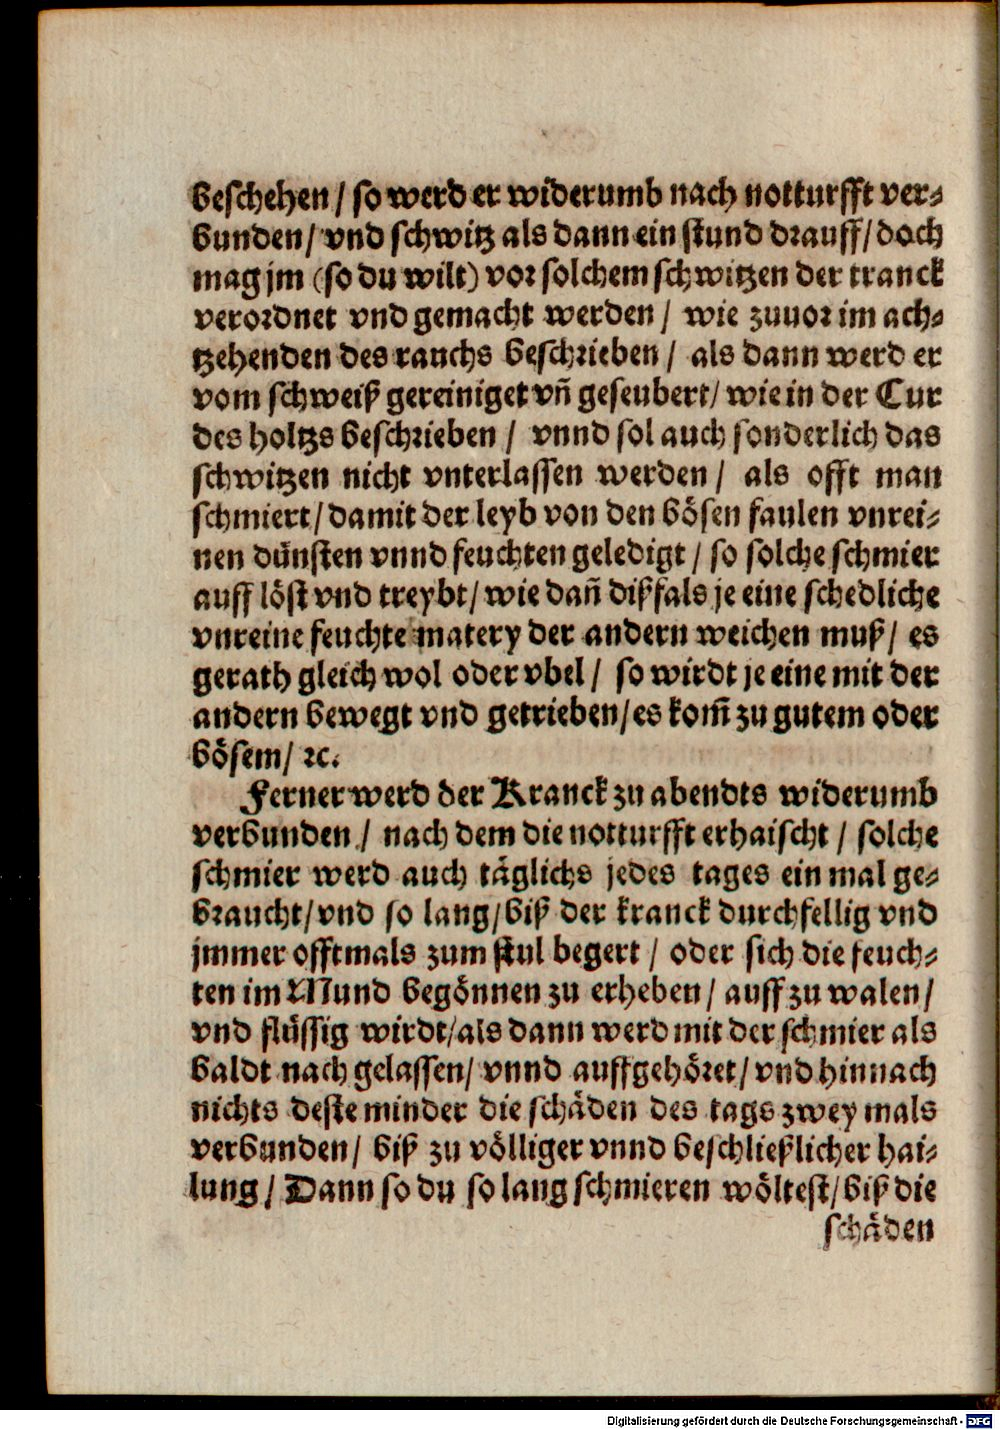 beschehen / so werd er widerumb nach notturfft ver⸗
bunden / vnd schwitz als dann ein stund drauff / doch
mag jm (so du wilt) vor solchem schwitzen der tranck
verordnet vnd gemacht werden / wie zuuor im ach⸗
tzehenden des rauchs beschrieben / als dann werd er
vom schweiß gereiniget vñ geseubert / wie in der Cur
des holtzs beschrieben / vnnd sol auch sonderlich das
schwitzen nicht vnterlassen werden / als offt man
schmiert / damit der leyb von den bösen faulen vnrei⸗
nen dünsten vnnd feuchten geledigt / so solche schmier
auff löst vnd treybt / wie dañ dißfals je eine schedliche
vnreine feuchte matery der andern weichen muß / es
gerath gleich wol oder vbel / so wirdt je eine mit der
andern bewegt vnd getrieben / es kom̃ zu gutem oder
bösem / ꝛc.
Ferner werd der Kranck zu abendts widerumb
verbunden / nach dem die notturfft erhaischt / solche
schmier werd auch täglichs jedes tages ein mal ge⸗
braucht / vnd so lang / biß der kranck durchfellig vnd
jmmer offtmals zum stul begert / oder sich die feuch⸗
ten im Mund begönnen zu erheben / auff zu walen /
vnd flüssig wirdt / als dann werd mit der schmier als
baldt nach gelassen / vnnd auffgehöret / vnd hinnach
nichts deste minder die schäden des tags zwey mals
verbunden / biß zu völliger vnnd beschließlicher hai⸗
lung / Dann so du so lang schmieren wöltest / biß die
schäden
Digitalisierung gefördert durch die Deutsche Forschungsgemeinschaft - DFG